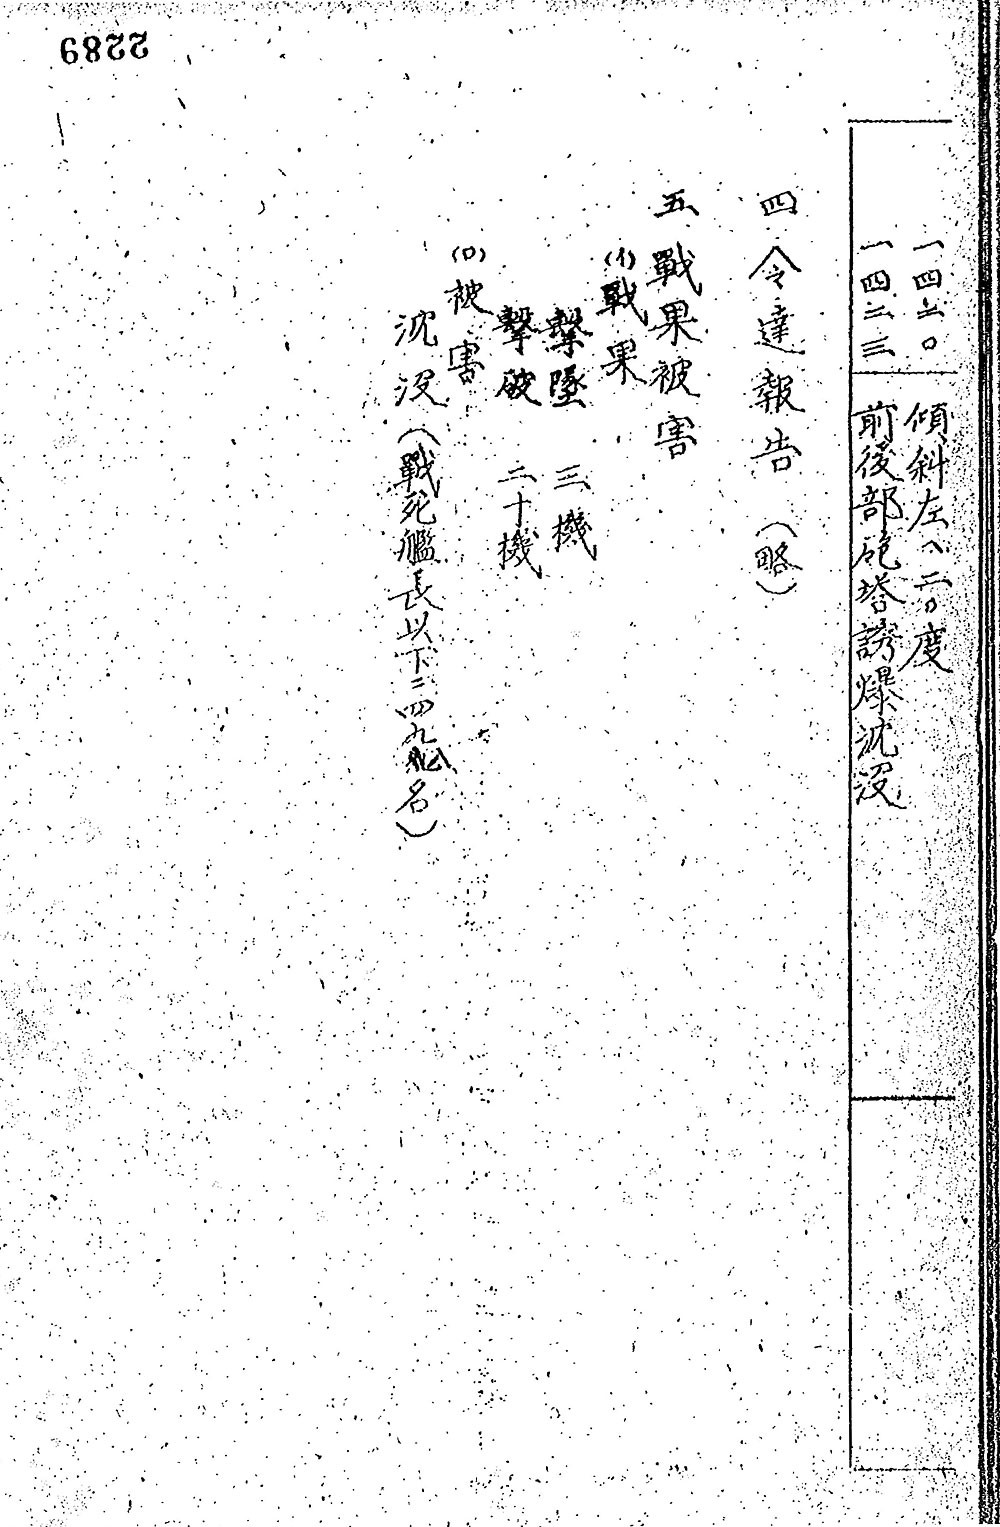 2289
一四二〇 傾斜左へ二〇度
一四二三 前後部砲塔誘爆沈没
四 令達報告 (略)
五、戰果被害
(イ)戰果
撃墜 三機
撃破 二十機
(ロ)被害
沈没(戰死艦長以下二四九八名)